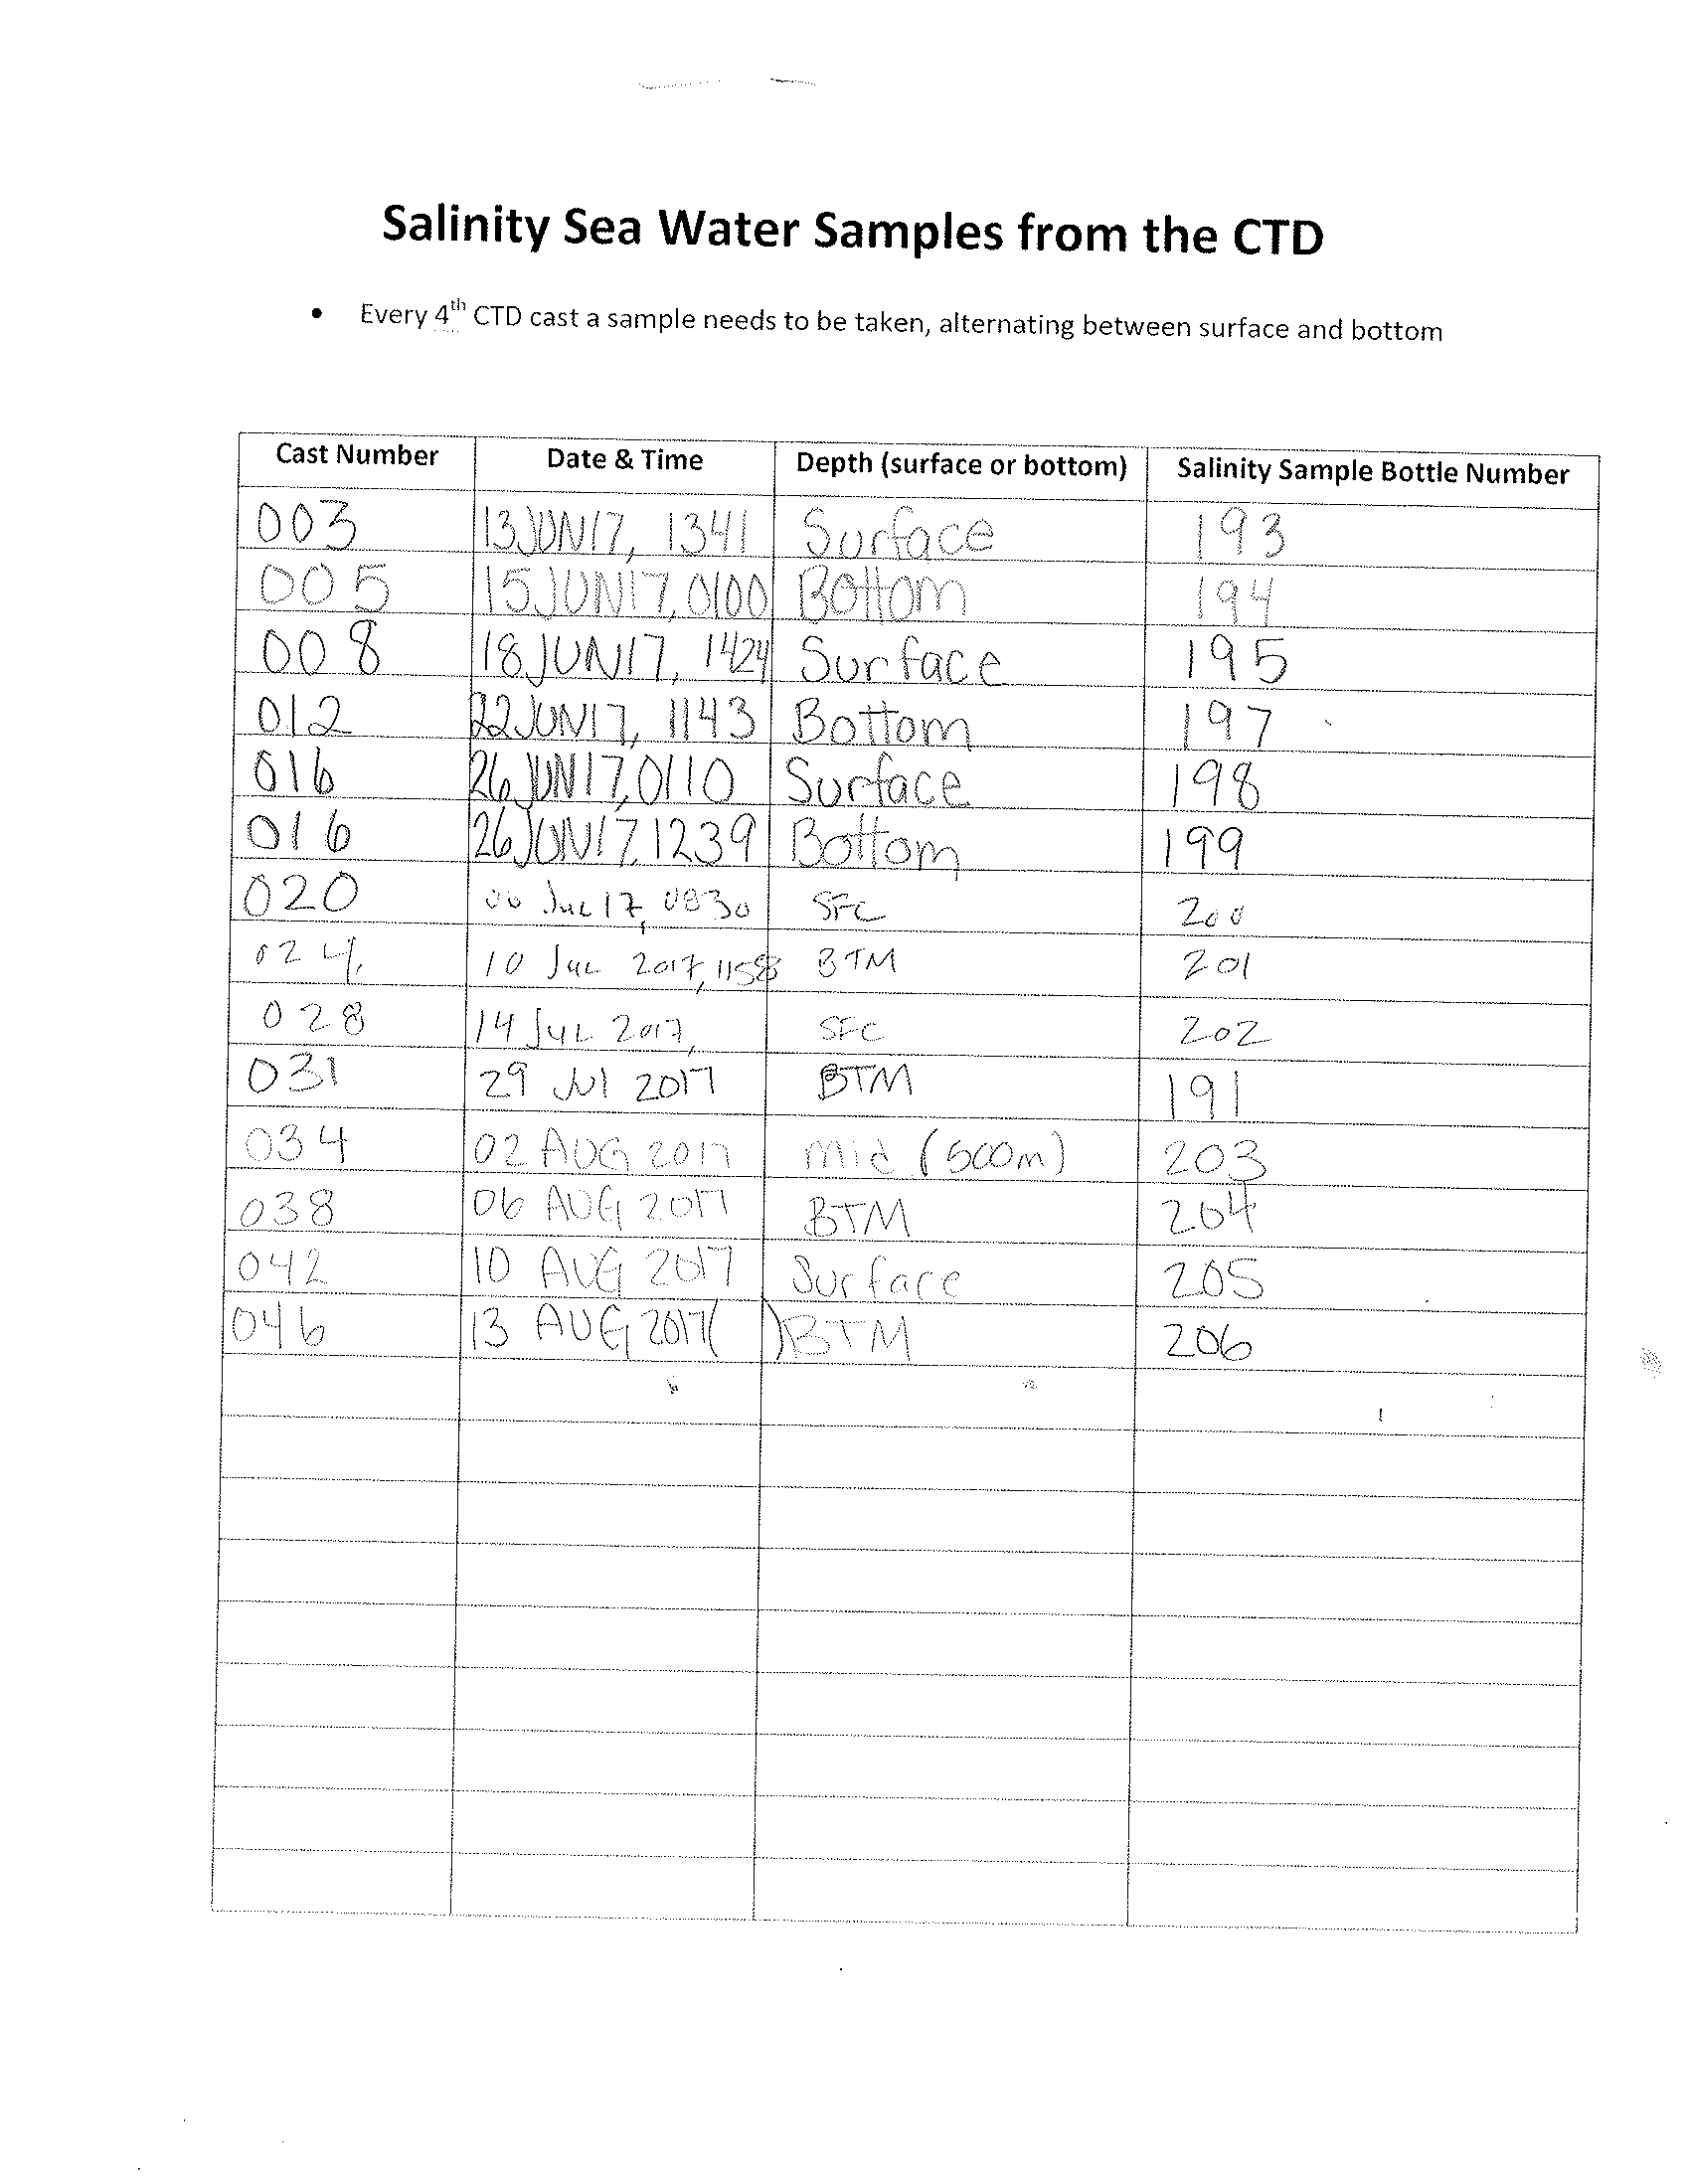 Salinity Sea Water Samples from the CTD
• Every 4th CTD cast a sample needs to be taken, alternating between surface and bottom
Cast Number Date & Time Depth (surface or bottom) Salinity Sample Bottle Number
003 13JUN17, 1341 Surface 193
005 15JUN17,0100 Bottom 194
008 18JUN17, 1424 Surface 195
012 22JUN17, 1143 Bottom 197
016 26JUN17,0110 Surface 198
016 26JUN17,1239 Bottom 199
020 06 Jul 17, 0830 SFC 200
024, 10 Jul 2017, 1158 BTM 201
028 14 Jul 2017, SFC 202
031 29 Jul 2017 BTM 191
034 02 AUG 2017 mid (500m) 203
038 06 AUG 2017 BTM 204
042 10 AUG 2017 Surface 205
046 13 AUG 2017( ) BTM 206